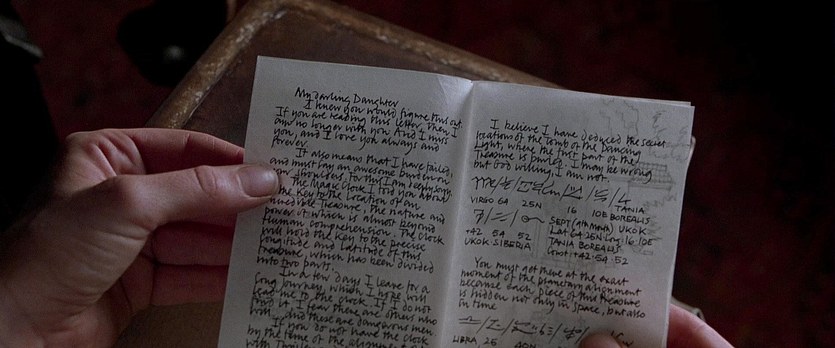 My darling Daughter
I knew you would figure this out
If you are reading this letter, then I
am no longer with you and I miss
you, and I love you always and
forever.
It also means that I have failed,
and must lay an awesome burden on
your shoulders, for this I am deeply sorry.
The Magic Clock I told you about
is the Key to the location of an
incredible Treasure. The nature and
power of which is almost beyond
Human comprehension. The Clock
will hold the Key to the precise
longitude and latitude of this
treasure, which has been divided
into two parts.
In a few days I leave for a
long journey, which I hope will
lead me to the clock. If I do not
find it I fear there are others who
will and these are dangerous men
If you do not have the clock
by the time of the alignment
I believe I have deduced the secret
location of the Tomb of the Dancing
Light, where the first part of the
Treasure is buried. I may be wrong
but God willing, I am not.
TANIA
VIRGO 64 25N 16 10E BOREALIS
SEPT UKOK
+42 54 52 Lat 64 25N Long 16 10E
UKOK SIBERIA TANIA BOREALIS
+42:54:52
You must get there at the exact
moment of the planetary alignment
because each piece of this treasure
is hidden not only in space, but also
in time
LIBRA, 25